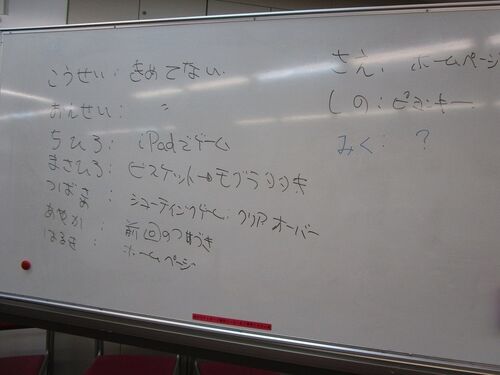 こうせい: きめてない
おんせい: 〃
ちひろ: iPadでゲーム
まさひろ: ビスケット→モグラ
つばさ: シューティングゲーム: クリア オーバー
あやか: 前回のつづき
はるき: ホームページ
さえ: ホームページ
しの: ピョンキー
みく: ?